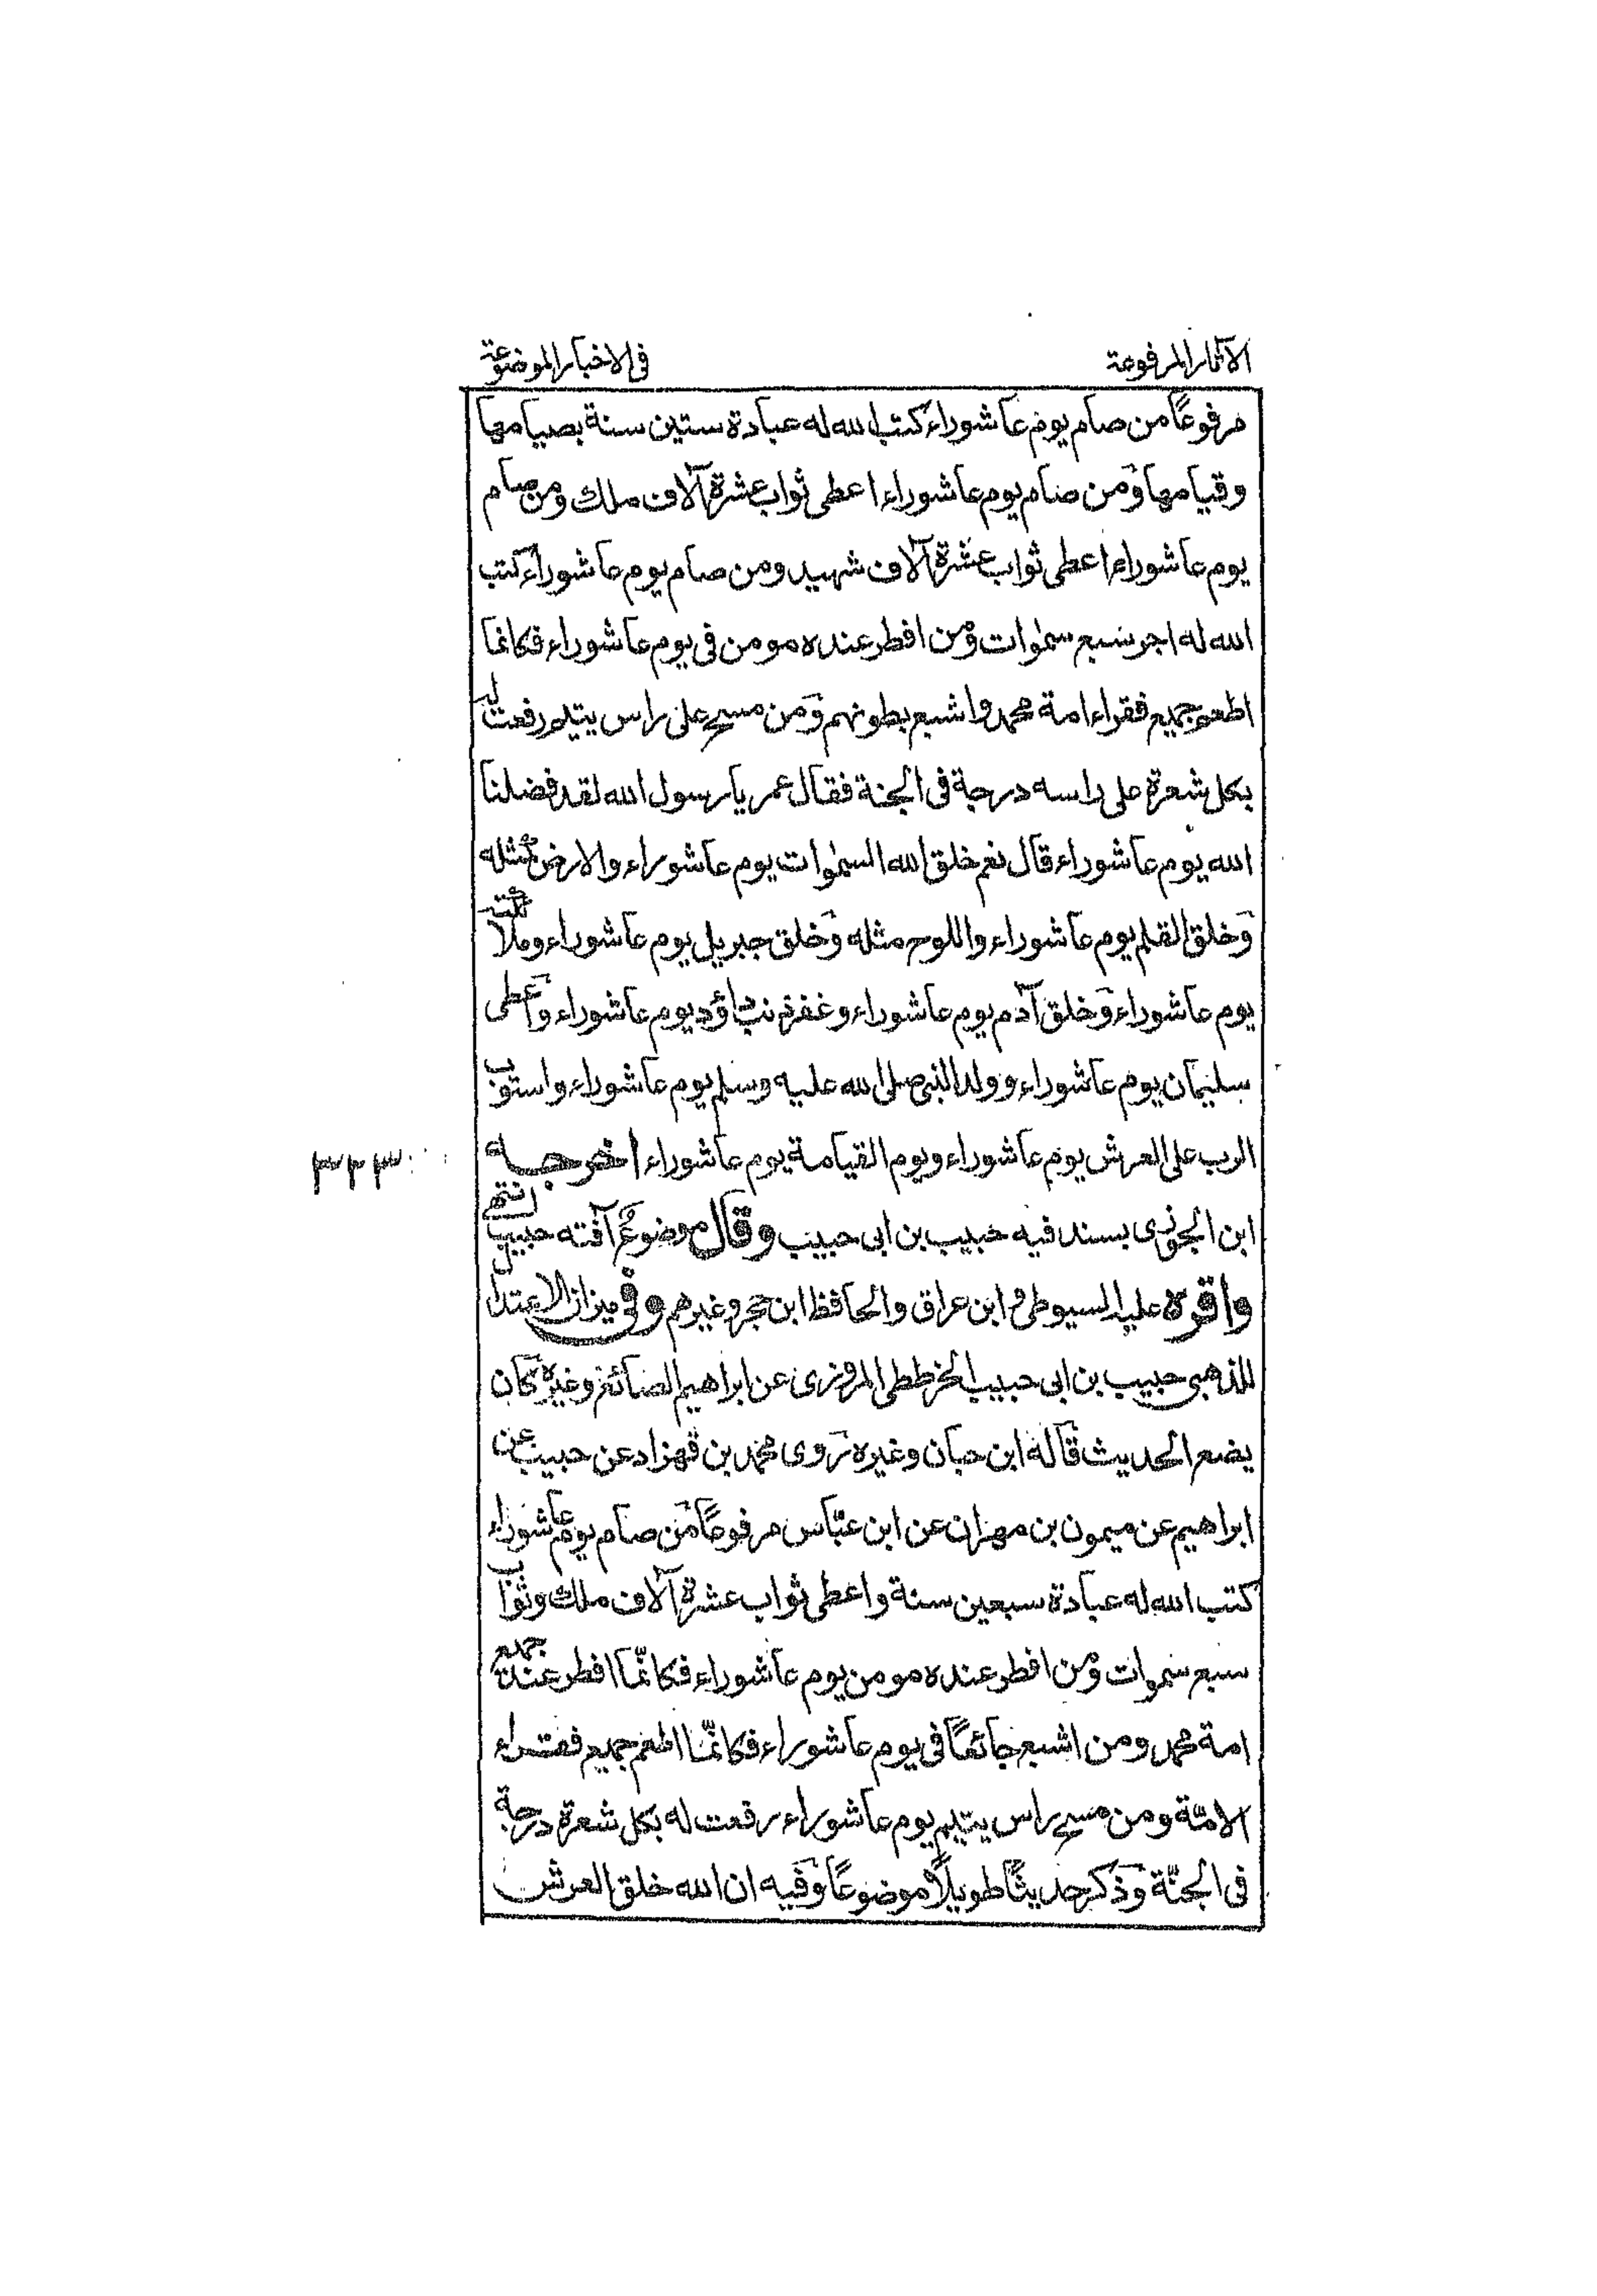 الآثار المرفوعة
فى الاخبار الموضوعة
مرفوعًا من صام يوم عاشوراء كتب الله له عبادة ستين سنة بصيامها
وقيامها ومن صام يوم عاشوراء اعطى ثواب عشرة آلاف ملك ومن صام
يوم عاشوراء اعطى ثواب عشرة آلاف شهيد ومن صام يوم عاشوراء كتب
الله له اجر سبع سمٰوات ومن افطر عنده مومن فى يوم عاشوراء فكانما
اطعم جميع فقراء امة محمد واشبع بطونهم ومن مسح على راس يتيم رفعت له
بكل شعرة على راسه درجة فى الجنة فقال عمر يا رسول الله لقد فضلنا
الله يوم عاشوراء قال نعم خلق الله السمٰوات يوم عاشوراء والارض كمثله
وخلق القلم يوم عاشوراء واللوح مثله وخلق جبريل يوم عاشوراء وملائكته
يوم عاشوراء وخلق آدم يوم عاشوراء وغفر ذنب داؤد يوم عاشوراء واعطى
سليمان يوم عاشوراء وولد النبى صلى الله عليه وسلم يوم عاشوراء واستوى
الرب على العرش يوم عاشوراء ويوم القيامة يوم عاشوراء اخرجه
٣٢٣
ابن الجوزى بسند فيه حبيب بن ابى حبيب وقال موضوع آفته حبيب انتهى
واقره عليه السيوطى وابن عراق والحافظ ابن حجر وغيرهم وفى ميزان الاعتدال
للذهبى حبيب بن ابى حبيب الخرططى المروزى عن ابراهيم الصائغ وغيره كان
يضع الحديث قاله ابن حبان وغيره روى محمد بن قهزاد عن حبيب عن
ابراهيم عن ميمون بن مهران عن ابن عبّاس مرفوعًا من صام يوم عاشوراء
كتب الله له عبادة سبعين سنة واعطى ثواب عشرة آلاف ملك وثواب
سبع سموات ومن افطر عنده مومن يوم عاشوراء فكانّما افطر عنده جميع
امة محمد ومن اشبع جائعًا فى يوم عاشوراء فكانّما اطعم جميع فقراء
الامّة ومن مسح راس يتيم يوم عاشوراء رفعت له بكل شعرة درجة
فى الجنّة وذكر حديثًا طويلًا موضوعًا وفيه ان الله خلق العرش